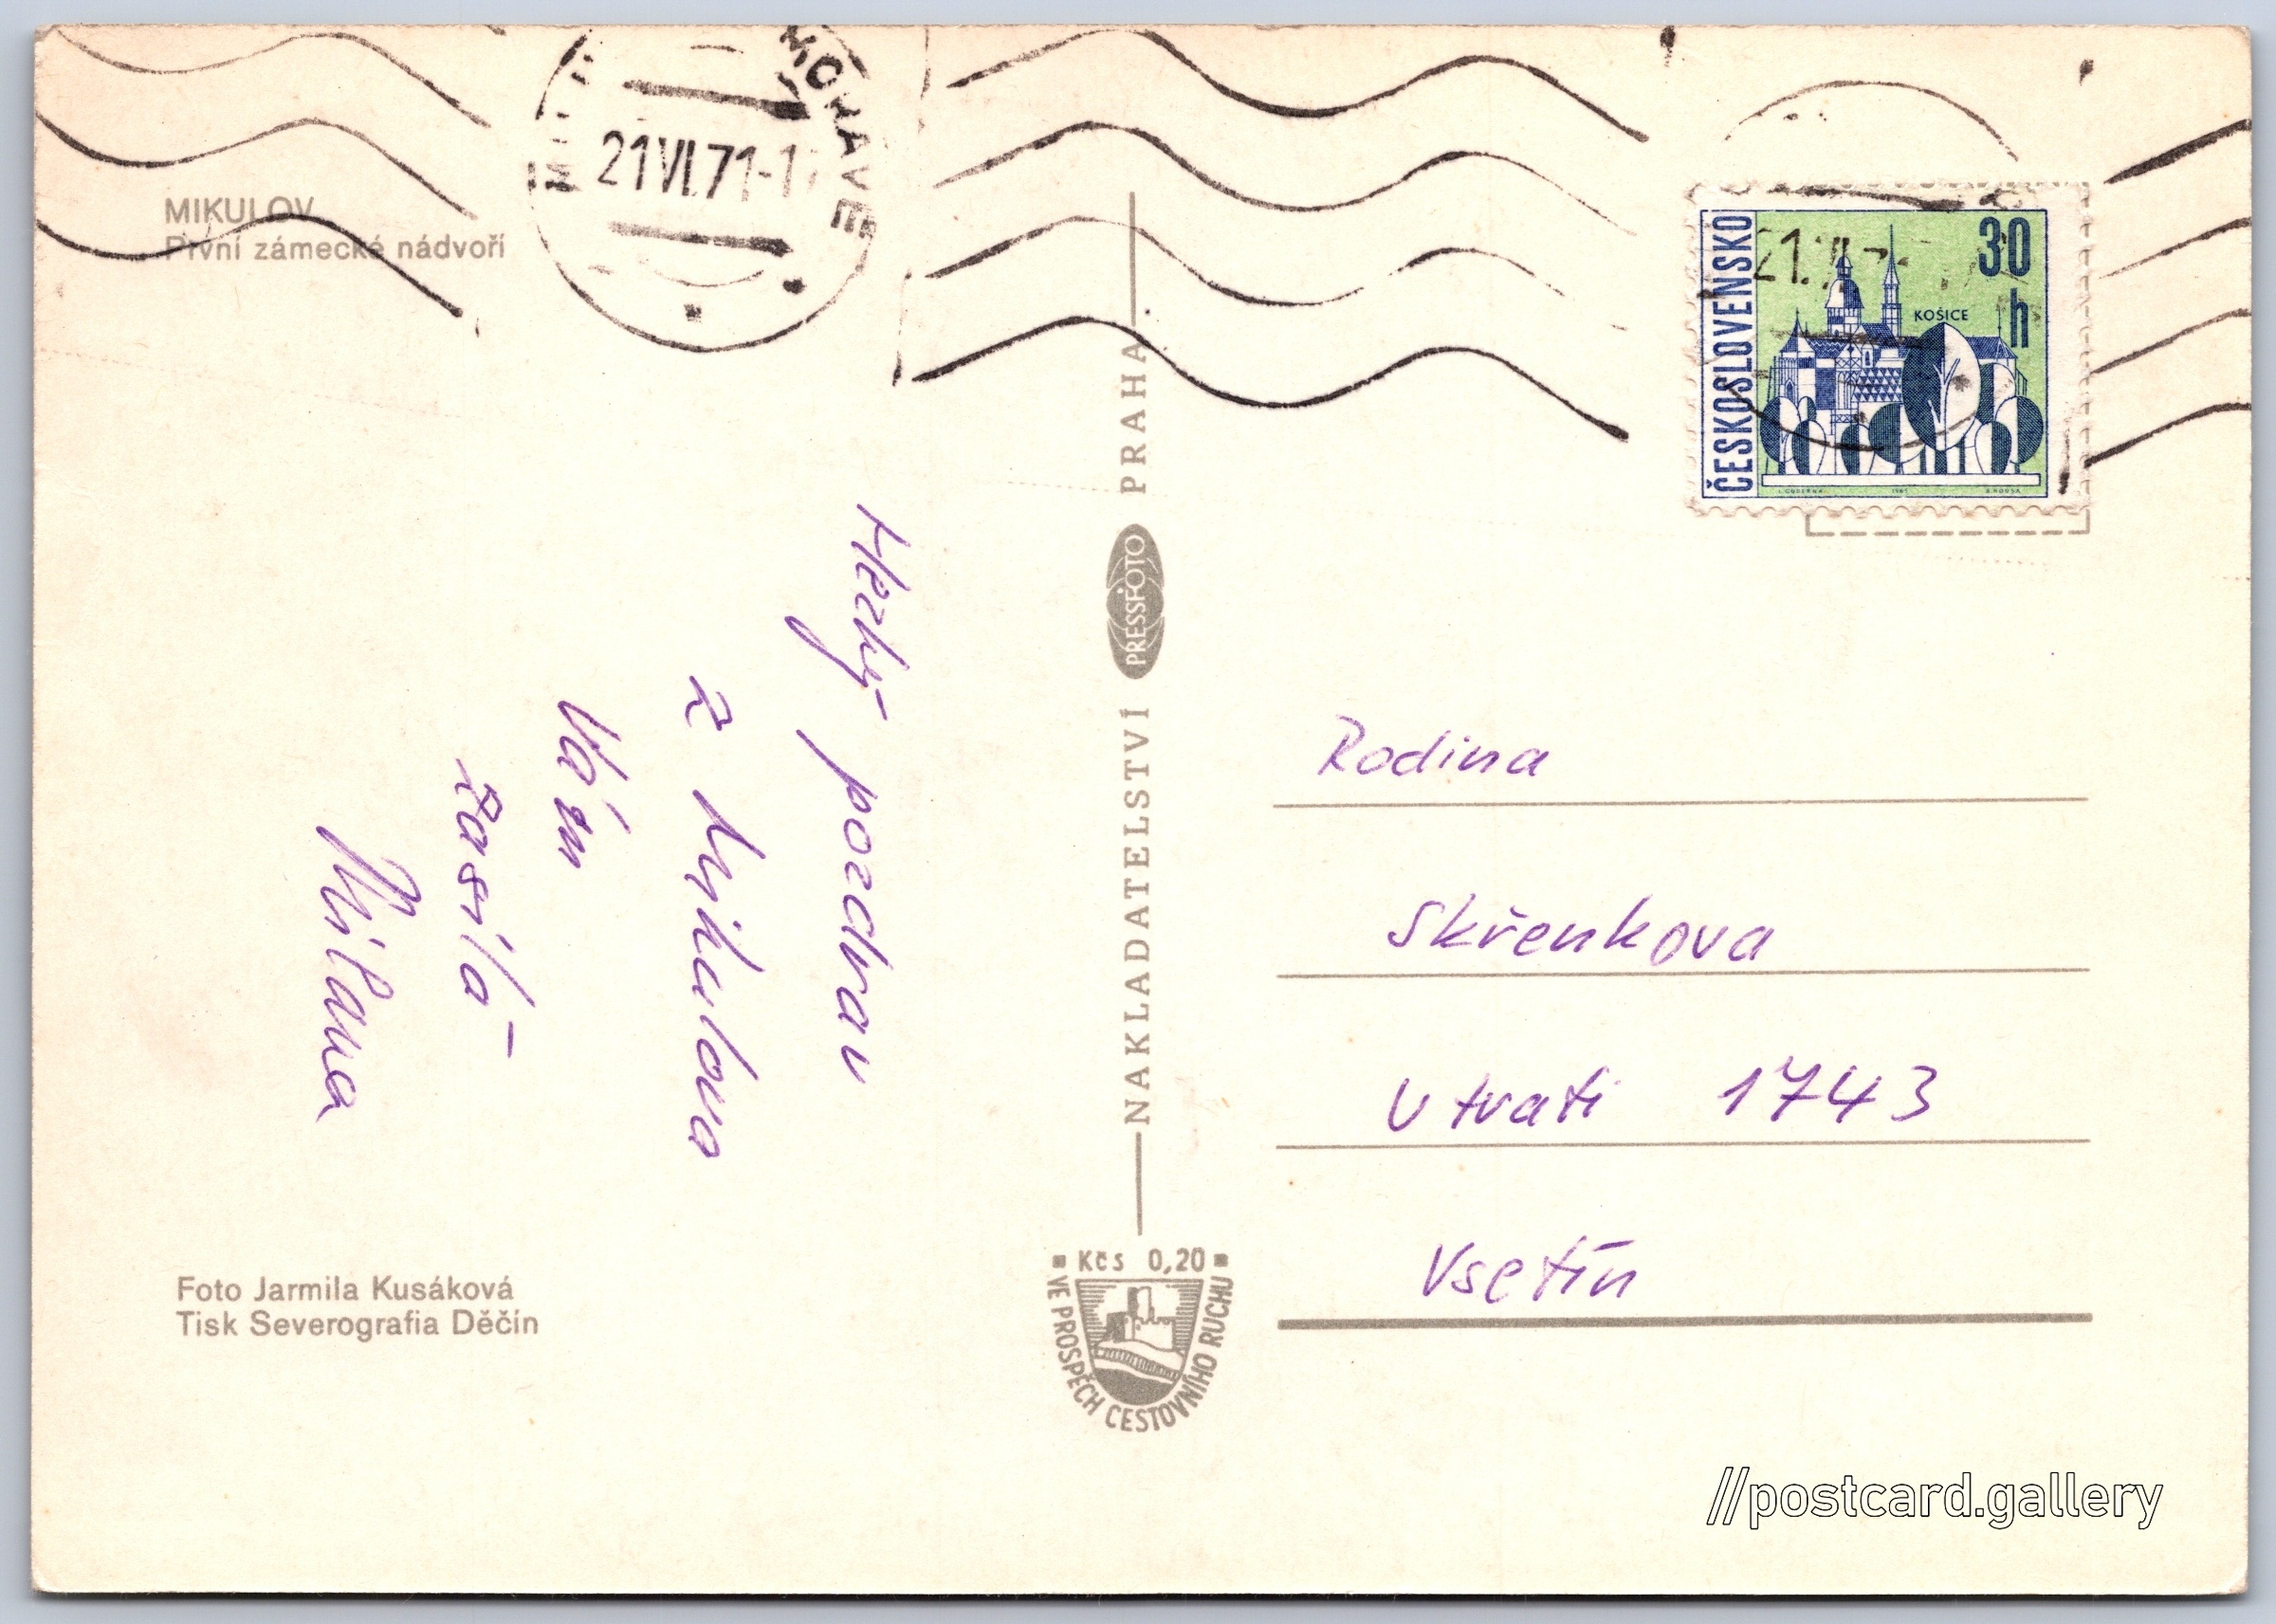 MIKULOV
První zámecké nádvoří
MORAVĚ
21.VI.71-1
ČESKOSLOVENSKO
30
h
KOŠICE
21.VI.7
Hezký pozdrav
z Mikulova
Vám
zasílá -
Milana
NAKLADATELSTVÍ PRESSFOTO PRAHA
Rodina
Skřenkova
U trati 1743
Vsetín
Kčs 0,20
VE PROSPĚCH CESTOVNÍHO RUCHU
Foto Jarmila Kusáková
Tisk Severografia Děčín
//postcard.gallery